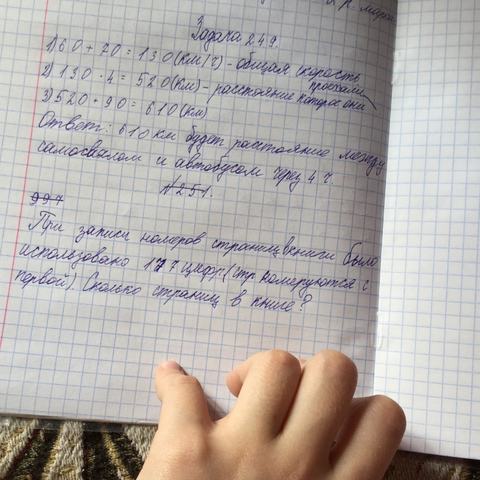 Задача 249.
1) 60 + 70 = 130 (км/ч) - общая скорость
2) 130 · 4 = 520 (км) - расстояние которое они проехали
3) 520 + 90 = 610 (км)
Ответ: 610 км будет расстояние между
самосвалом и автобусом через 4 ч.
№251.
997
При записи номеров страниц книги было
использовано 177 цифр (стр номеруются с
первой). Сколько страниц в книге?